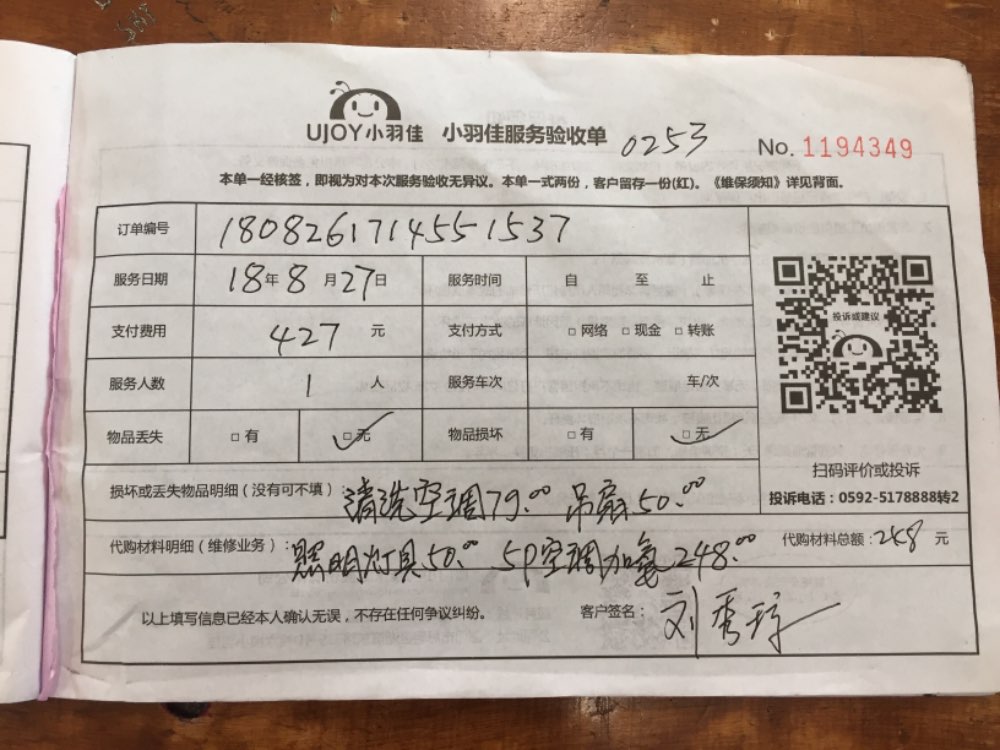 UJOY小羽佳 小羽佳服务验收单 0253 No. 1194349
本单一经核签，即视为对本次服务验收无异议。本单一式两份，客户留存一份(红)。《维保须知》详见背面。
订单编号 1808261714551537
服务日期 18年8月27日 服务时间 自 至 止
支付费用 427 元 支付方式 □网络 □现金 □转账
投诉或建议
服务人数 1 人 服务车次 车/次
物品丢失 □有 ☑无 物品损坏 □有 ☑无
扫码评价或投诉
损坏或丢失物品明细（没有可不填）：清洗空调79.00 吊扇50.00
投诉电话：0592-5178888转2
代购材料明细（维修业务）：照明灯具50.00 5P空调加氟248.00 代购材料总额：248 元
以上填写信息已经本人确认无误，不存在任何争议纠纷。 客户签名：刘秀